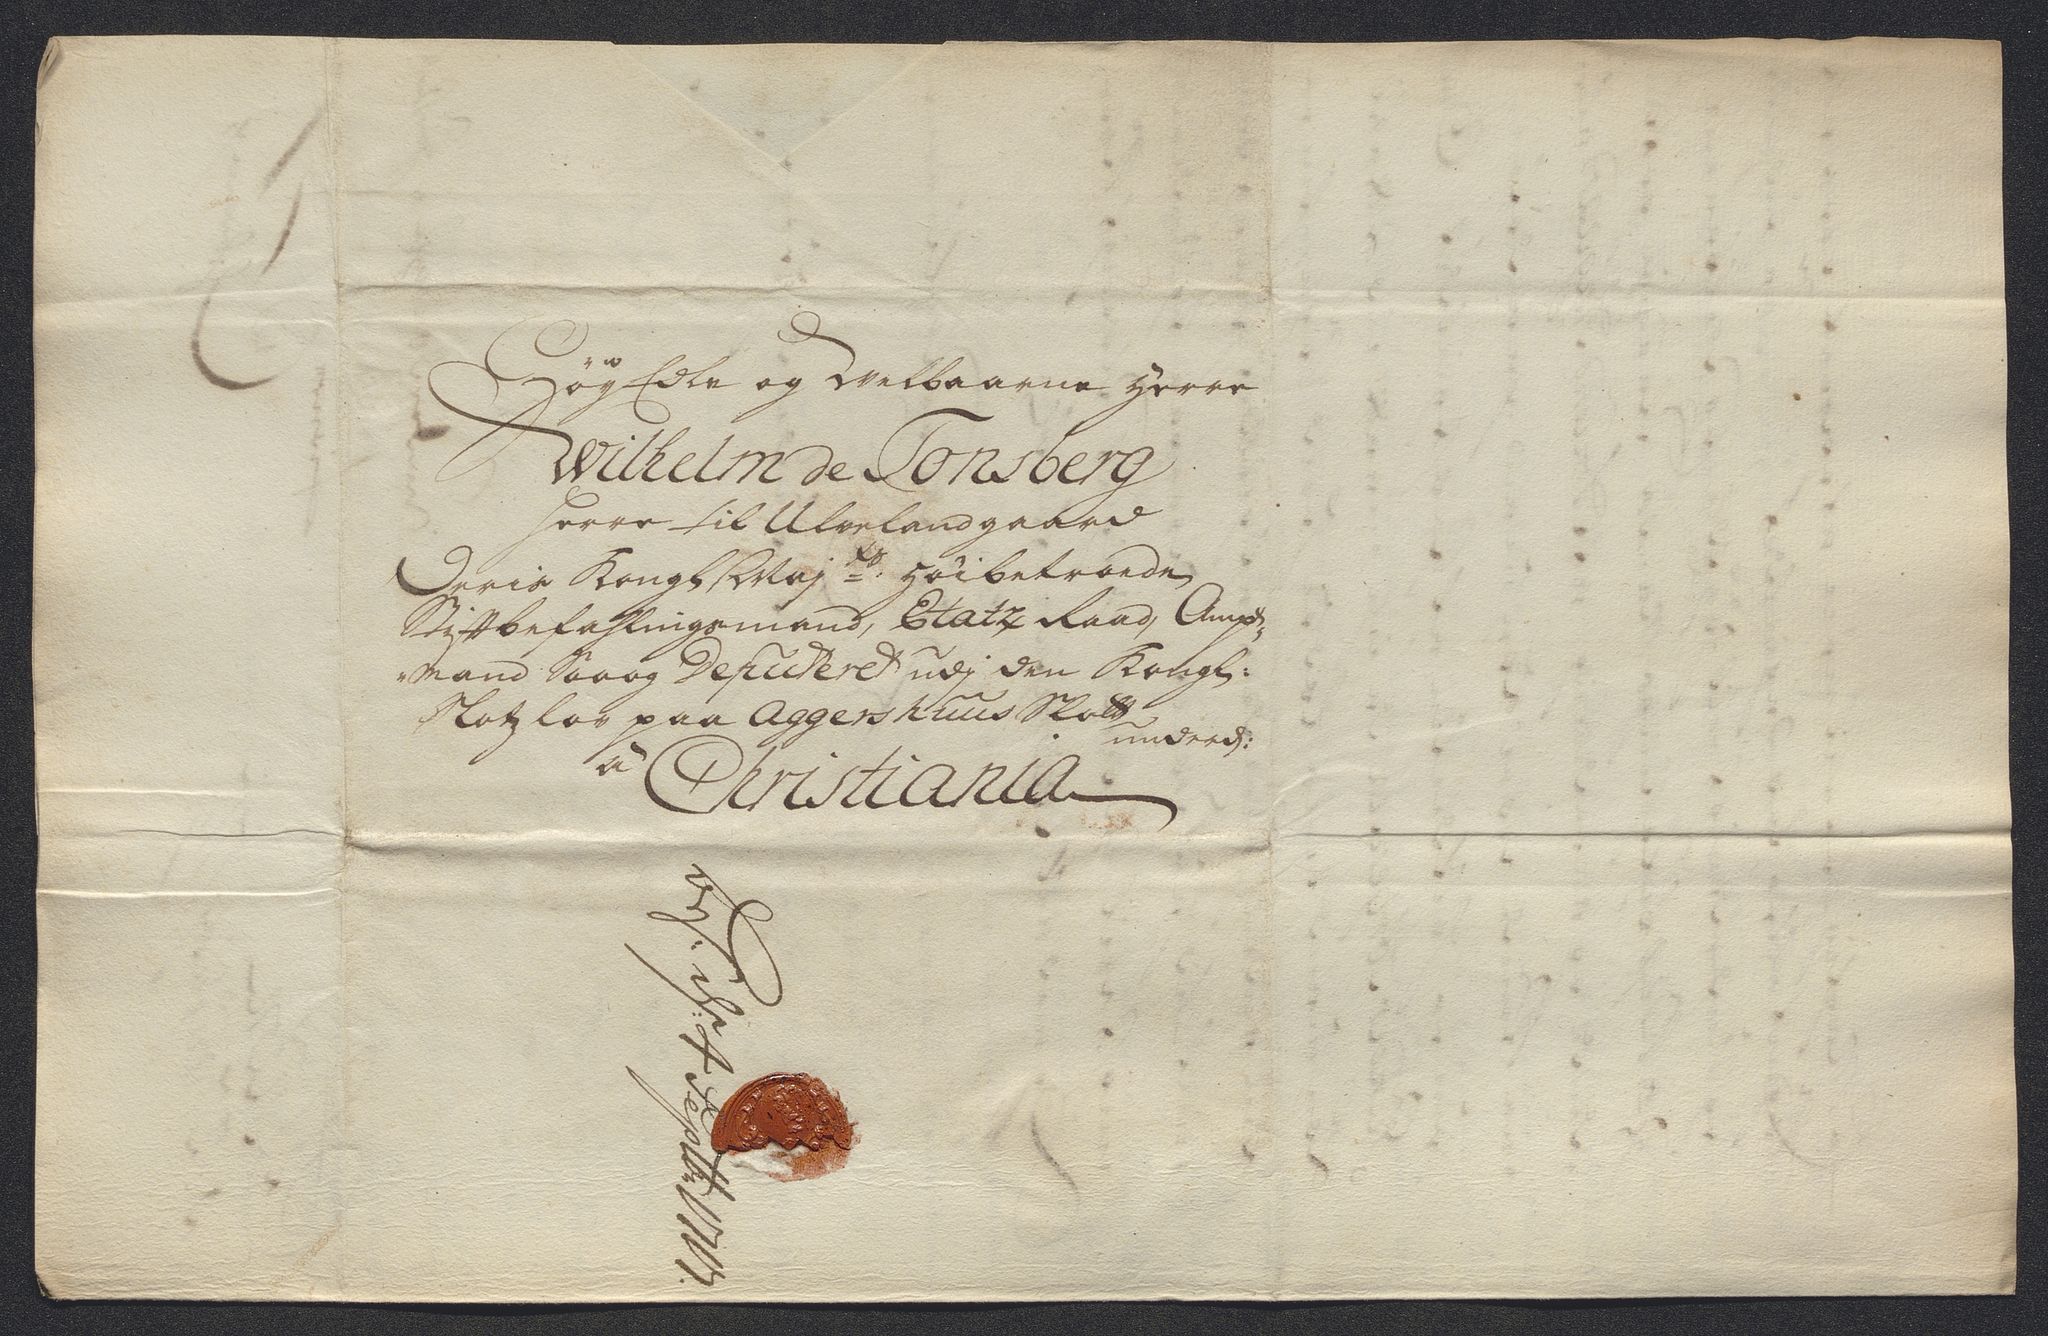 Høÿ Edle og Velbaarne Herre
Wilhelm de Tonsberg
Herre til Ulvelandgaard
Deris Kongl: Maj:ts Høibetroede
Stiftbefahlingsmand, Etatz Raad, Ampt-
mand Saaog Deputeret udj den Kongl:
Slotz lov paa Aggershuus Slott
underd:
à Christiania